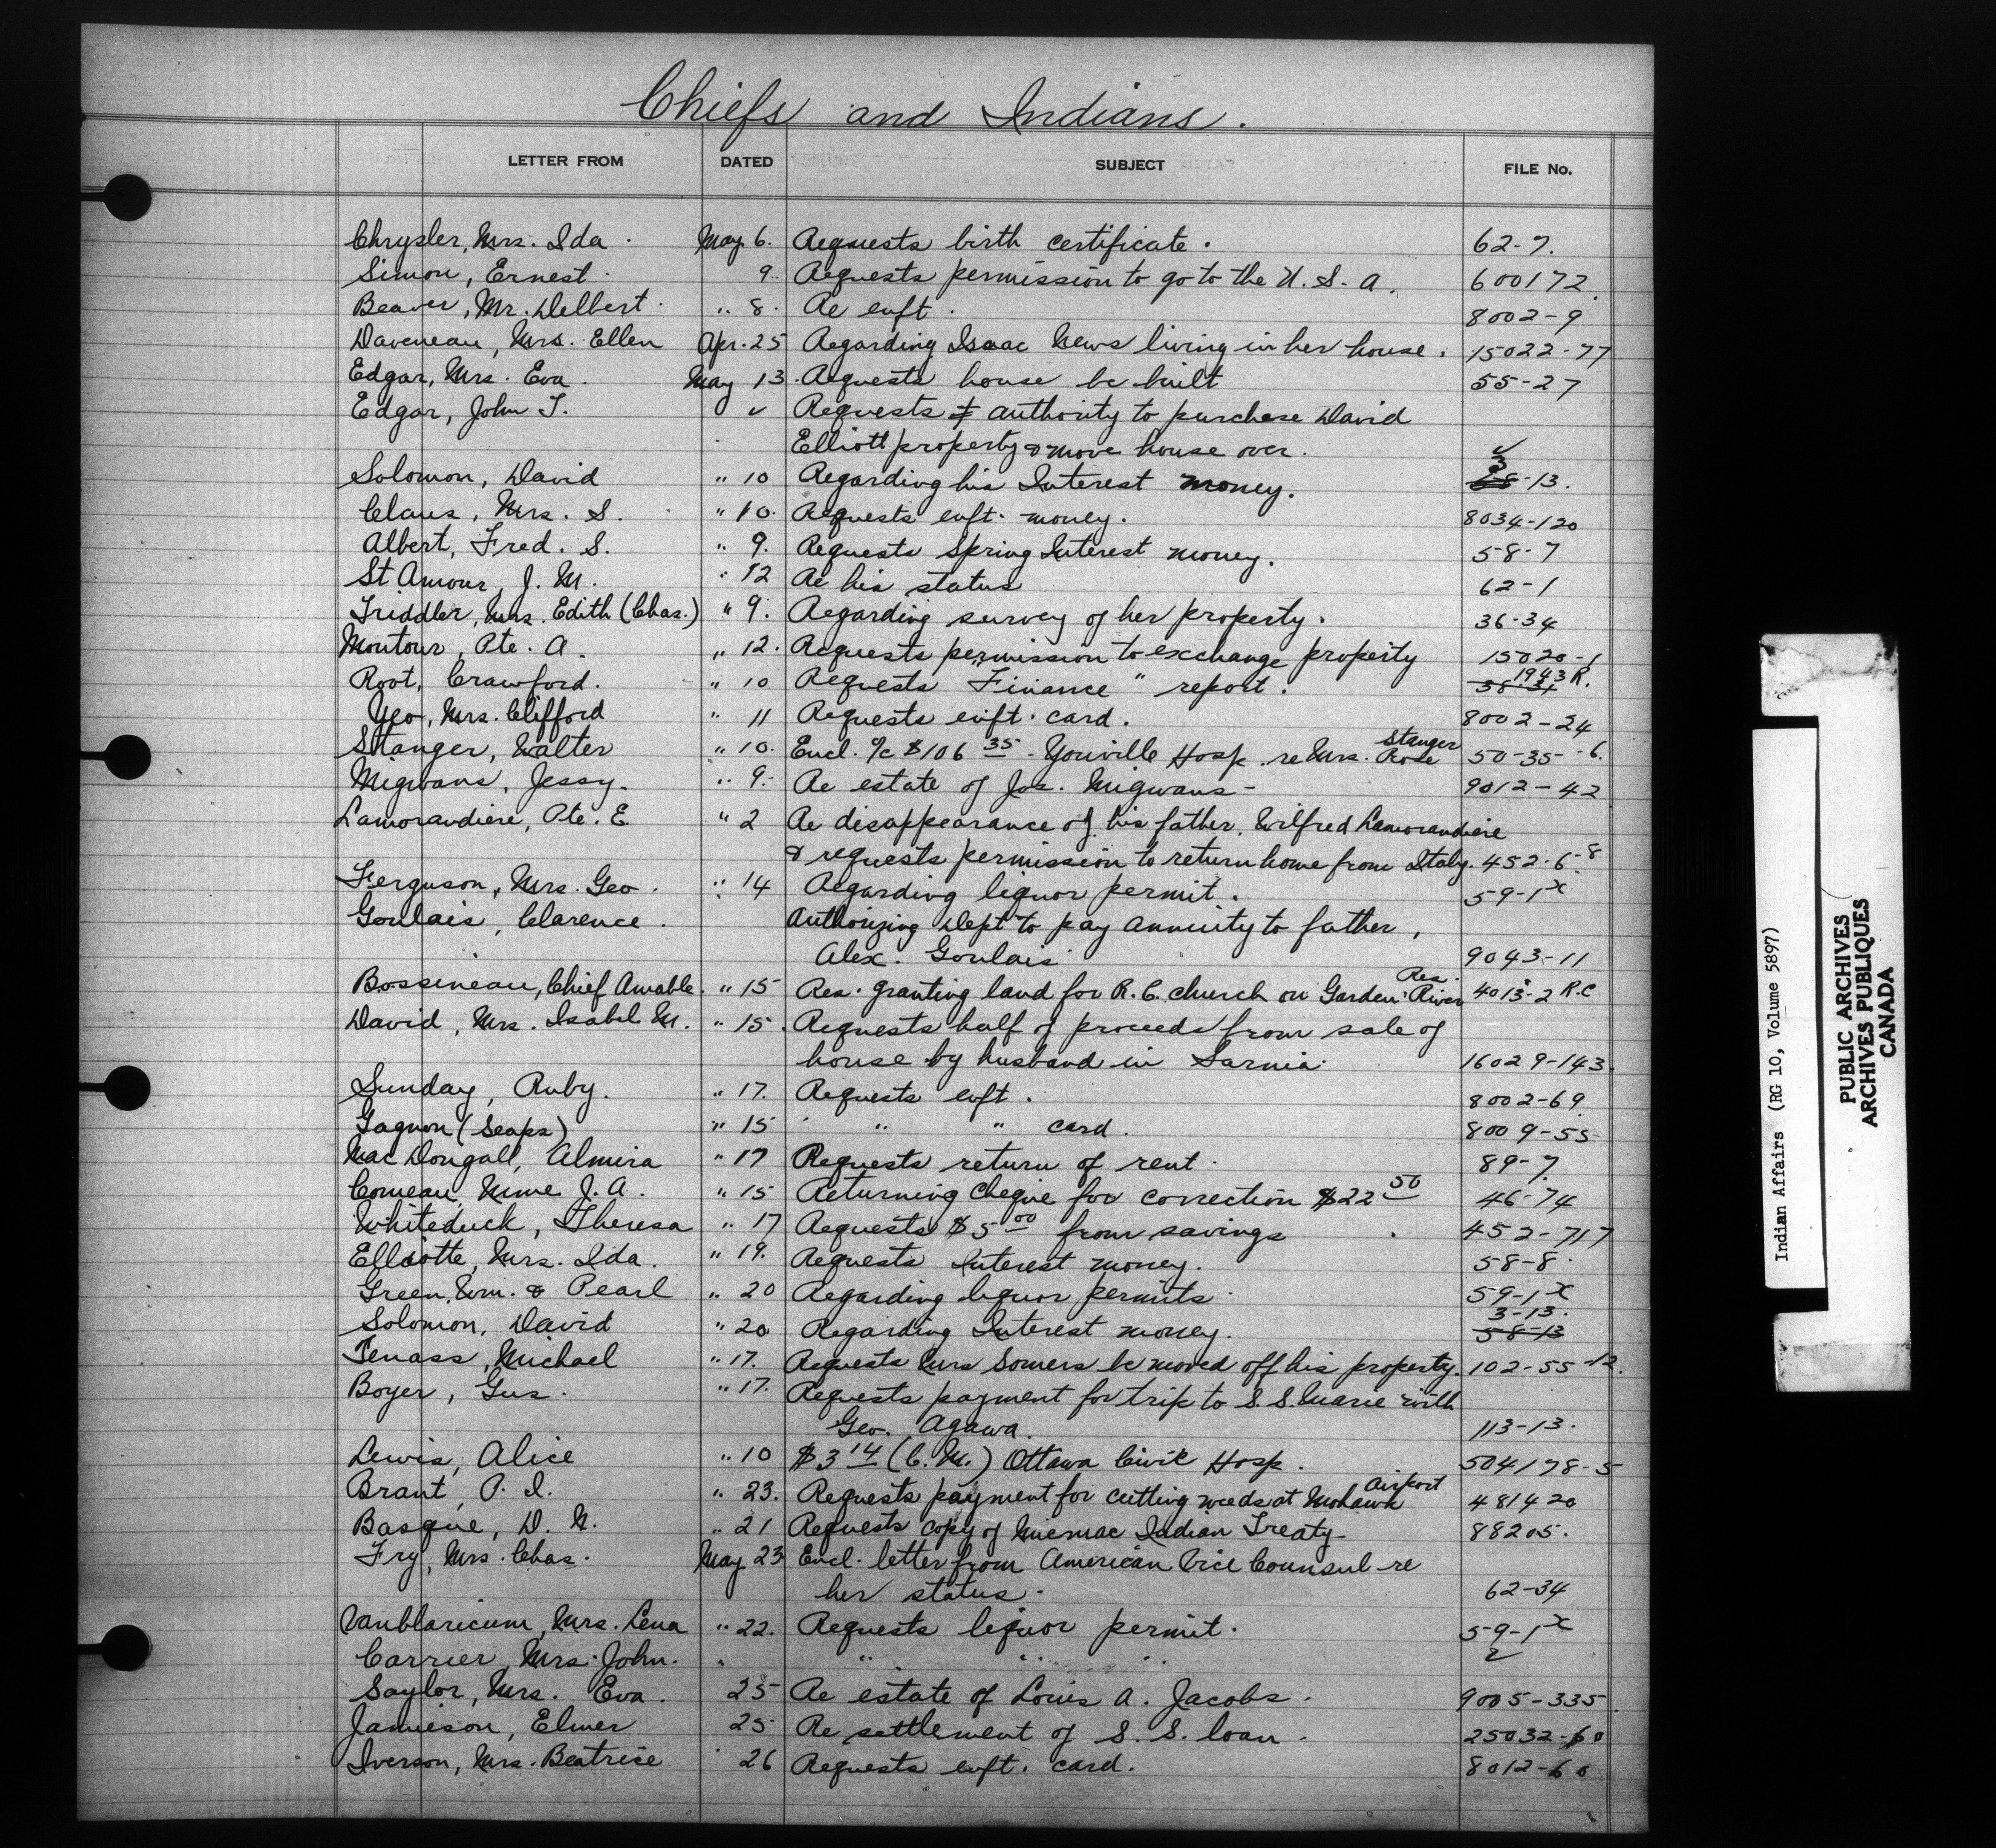 Chiefs and Indians.
LETTER FROM DATED SUBJECT FILE No.
Chrysler, Mrs. Ida. May 6. Requests birth certificate. 62-7.
Simon, Ernest. 9. Requests permission to go to the U.S.A. 600172.
Beaver, Mr. Delbert. " 8. Re enft. 8002-9
Daveneau, Mrs. Ellen Apr. 25 Regarding Isaac News living in her house. 15022-77
Edgar, Mrs. Eva. May 13. Requests house be built 55-27
Edgar, John T. Requests authority to purchase David
Elliott property & move house over.
Solomon, David " 10 Regarding his Interest money. 3-13.
Claus, Mrs. S. " 10. Requests enft. money. 8034-120
Albert, Fred. S. " 9. Requests Spring Interest money. 58-7
St Amour, J. M. " 12 Re his status 62-1
Triddler, Mrs. Edith (Chas.) " 9. Regarding survey of her property. 36-34
Montour, Pte. A. " 12. Requests permission to exchange property 15020-1
Root, Crawford. " 10 Requests "Finance" report. 38-31 1943 R.
Yeo, Mrs. Clifford " 11 Requests enft. card. 8002-24
Stanger, Walter " 10. Encl. a/c $106 35 - Youville Hosp. re Mrs. Rose Stanger 50-35-6.
Migwans, Jessy. " 9. Re estate of Jos. Migwans - 9012-42
Lamorandiere, Pte. E " 2 Re disappearance of his father, Wilfred Lamorandiere
& requests permission to return home from Italy. 452-6-8
Ferguson, Mrs. Geo. " 14 Regarding liquor permit. 59-1 x
Goulais, Clarence. Authorizing Dept to pay annuity to father,
Alex. Goulais 9043-11
Bossineau, Chief Amable. " 15 Res. granting land for R.C. church on Garden River Res. 4013-2 R.C
David, Mrs. Isabel M. " 15. Requests half of proceeds from sale of
house by husband in Sarnia. 16029-143.
Sunday, Ruby. " 17. Requests enft. 8002-69.
Gagnon (Seaps) " 15 " " card. 8009-55
Mac Dougall, Almira " 17 Requests return of rent. 89-7.
Comeau, Mme J. A. " 15 Returning cheque for correction $22 50 46-74
Whiteduck, Theresa " 17 Requests $5 00 from savings. 452-717
Elliotte, Mrs. Ida. " 19. Requests Interest money. 58-8.
Green, Wm. & Pearl " 20 Regarding liquor permits 59-1 x
Solomon, David " 20 Regarding Interest money. 3-13. 58-13
Tenass, Michael " 17. Requests Mrs Somers be moved off his property. 102-55-12.
Boyer, Gus. " 17. Requests payment for trip to S. S. Marie with
Geo. Agawa. 113-13.
Lewis, Alice " 10 $3 14 (C.M.) Ottawa Civic Hosp. 504178-5
Brant, P. I. " 23. Requests payment for cutting weeds at Mohawk Airport 481420
Basque, D. N. " 21 Requests copy of Micmac Indian Treaty - 88205.
Fry, Mrs. Chas. May 23 Encl. letter from American Vice Counsul - re
her status. 62-34
Vanblaricum, Mrs. Lena " 22. Requests liquor permit. 59-1 x
Carrier, Mrs. John. " " " "
Saylor, Mrs. Eva. 25 Re estate of Louis A. Jacobs. 9005-335
Jamieson, Elmer 25 Re settlement of S. S. loan. 25032-60
Iverson, Mrs. Beatrice 26 Requests enft. card. 8012-60
Indian Affairs (RG 10, Volume 5897)
PUBLIC ARCHIVES
ARCHIVES PUBLIQUES
CANADA